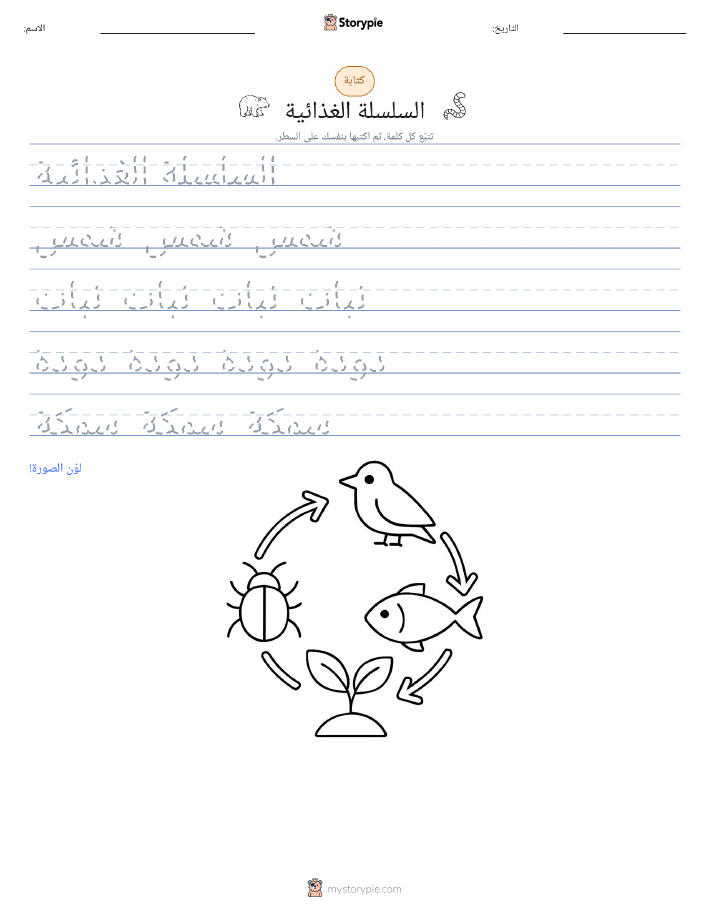 الاسم:
Storypie
التاريخ:
كتابة
السلسلة الغذائية
تتبّع كل كلمة، ثم اكتبها بنفسك على السطر.
السلسلة الغذائية
شمس شمس شمس
نبات نبات نبات نبات
دودة دودة دودة دودة
سمكة سمكة سمكة
لوّن الصورة!
mystorypie.com